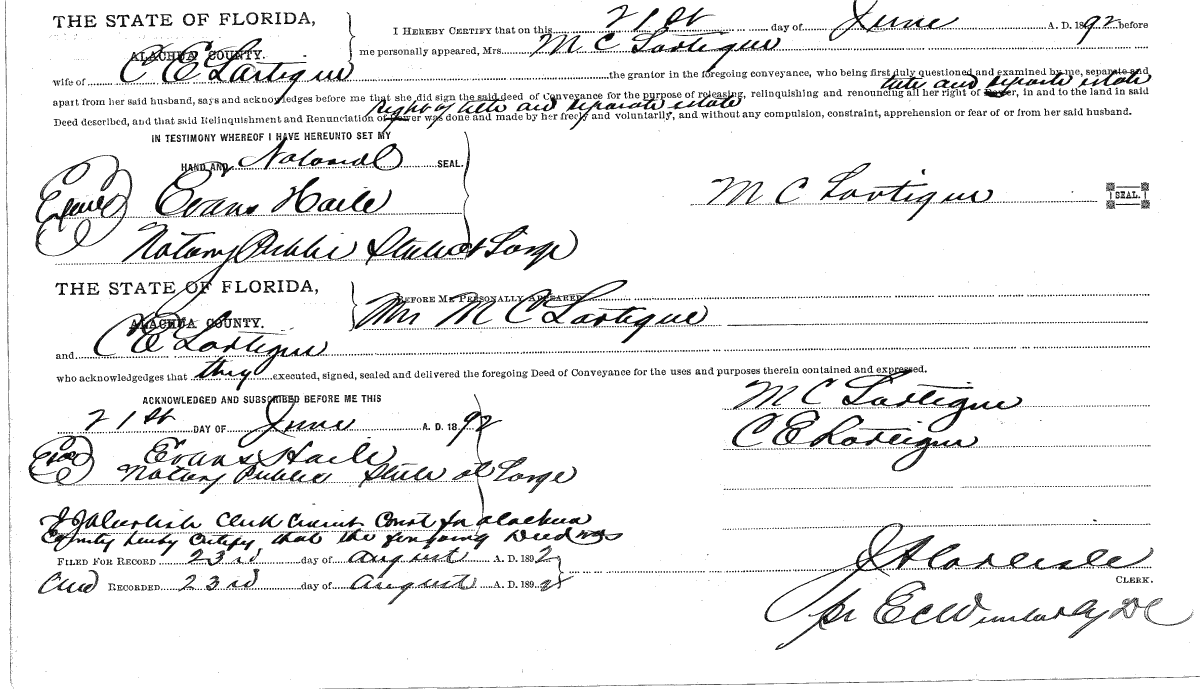 THE STATE OF FLORIDA,
ALACHUA COUNTY.
I HEREBY CERTIFY that on this 21st day of June A. D. 1892 before
me personally appeared, Mrs. M C Lartigue
wife of C E Lartigue the grantor in the foregoing conveyance, who being first duly questioned and examined by me, separate and
title and separate estate
apart from her said husband, says and acknowledges before me that she did sign the said deed of Conveyance for the purpose of releasing, relinquishing and renouncing all her right of Dower, in and to the land in said
right of title and separate estate
Deed described, and that said Relinquishment and Renunciation of Dower was done and made by her freely and voluntarily, and without any compulsion, constraint, apprehension or fear of or from her said husband.
IN TESTIMONY WHEREOF I HAVE HEREUNTO SET MY
HAND AND Notarial SEAL.
Evans Haile
Notary Public State at Large
M C Lartigue SEAL.
THE STATE OF FLORIDA,
ALACHUA COUNTY.
BEFORE ME PERSONALLY APPEARED
Mrs M C Lartigue
and C E Lartigue
who acknowledgedges that they executed, signed, sealed and delivered the foregoing Deed of Conveyance for the uses and purposes therein contained and expressed.
ACKNOWLEDGED AND SUBSCRIBED BEFORE ME THIS
21st DAY OF June A. D. 1892
Evans Haile
Notary Public State at Large
M C Lartigue
C E Lartigue
I J A Carlisle Clerk Circuit Court for Alachua
County hereby certify that the foregoing Deed was
FILED FOR RECORD 23rd day of August A. D. 1892
and RECORDED 23rd day of August A. D. 1892
J A Carlisle
CLERK.
pr E C Wimberly DC